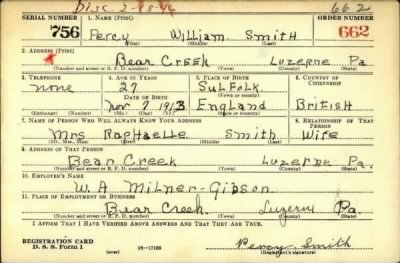 Disc. 2-18-46
662
SERIAL NUMBER 1. NAME (Print) ORDER NUMBER
756 Percy William Smith 662
(First) (Middle) (Last)
2. ADDRESS (Print)
Bear Creek Luzerne Pa.
(Number and street or R. F. D. number) (Town) (County) (State)
3. TELEPHONE 4. AGE IN YEARS 5. PLACE OF BIRTH 6. COUNTRY OF CITIZENSHIP
none 27 Sulfolk
DATE OF BIRTH
Nov 7 1913 England British
(Exchange) (Number) (Mo.) (Day) (Yr.) (State or country)
7. NAME OF PERSON WHO WILL ALWAYS KNOW YOUR ADDRESS 8. RELATIONSHIP OF THAT PERSON
Mrs Raphaelle Smith Wife
(Mr., Mrs., Miss) (First) (Middle) (Last)
9. ADDRESS OF THAT PERSON
Bear Creek Luzerne Pa.
(Number and street or R. F. D. number) (Town) (County) (State)
10. EMPLOYER'S NAME
W. A. Milner-Gibson
11. PLACE OF EMPLOYMENT OR BUSINESS
Bear Creek. Luzerne Pa
(Number and street or R. F. D. number) (Town) (County) (State)
I AFFIRM THAT I HAVE VERIFIED ABOVE ANSWERS AND THAT THEY ARE TRUE.
REGISTRATION CARD
D. S. S. Form 1 (over) 16-17105 Percy Smith
(Registrant's signature)